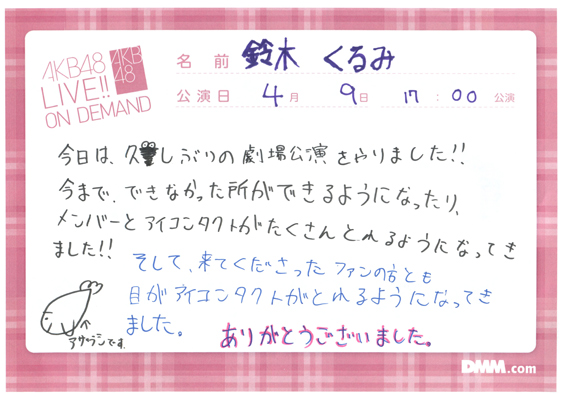 AKB48
LIVE!!
ON DEMAND
AKB
48
名前 鈴木 くるみ
公演日 4月 9日 17:00 公演
今日は、久しぶりの劇場公演をやりました!!
今まで、できなかった所ができるようになったり、
メンバーとアイコンタクトがたくさんとれるようになってき
ました!!
そして、来てくださったファンの方とも
目がアイコンタクトがとれるようになってき
ました。
ありがとうございました。
アザラシです。
DMM.com